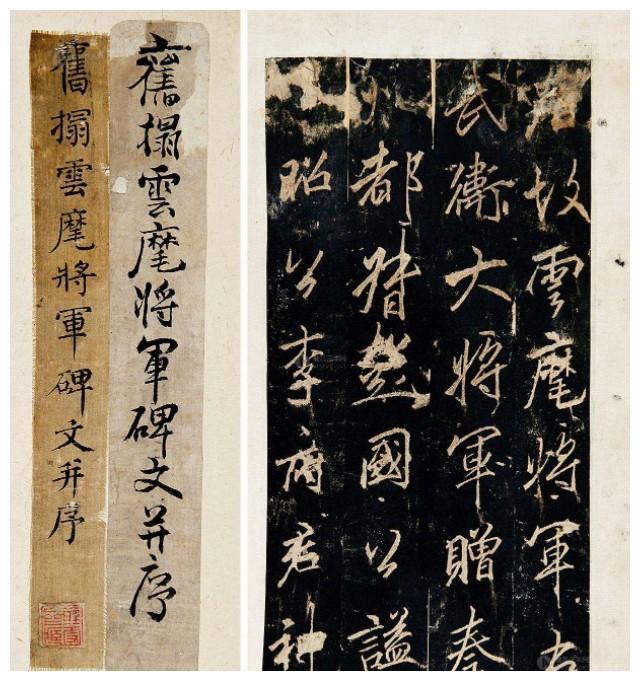 舊搨雲麾將軍碑文并序
舊搨雲麾將軍碑文并序
故雲麾將軍右
武衛大將軍贈秦
州都督彭國公謚
昭公李府君神